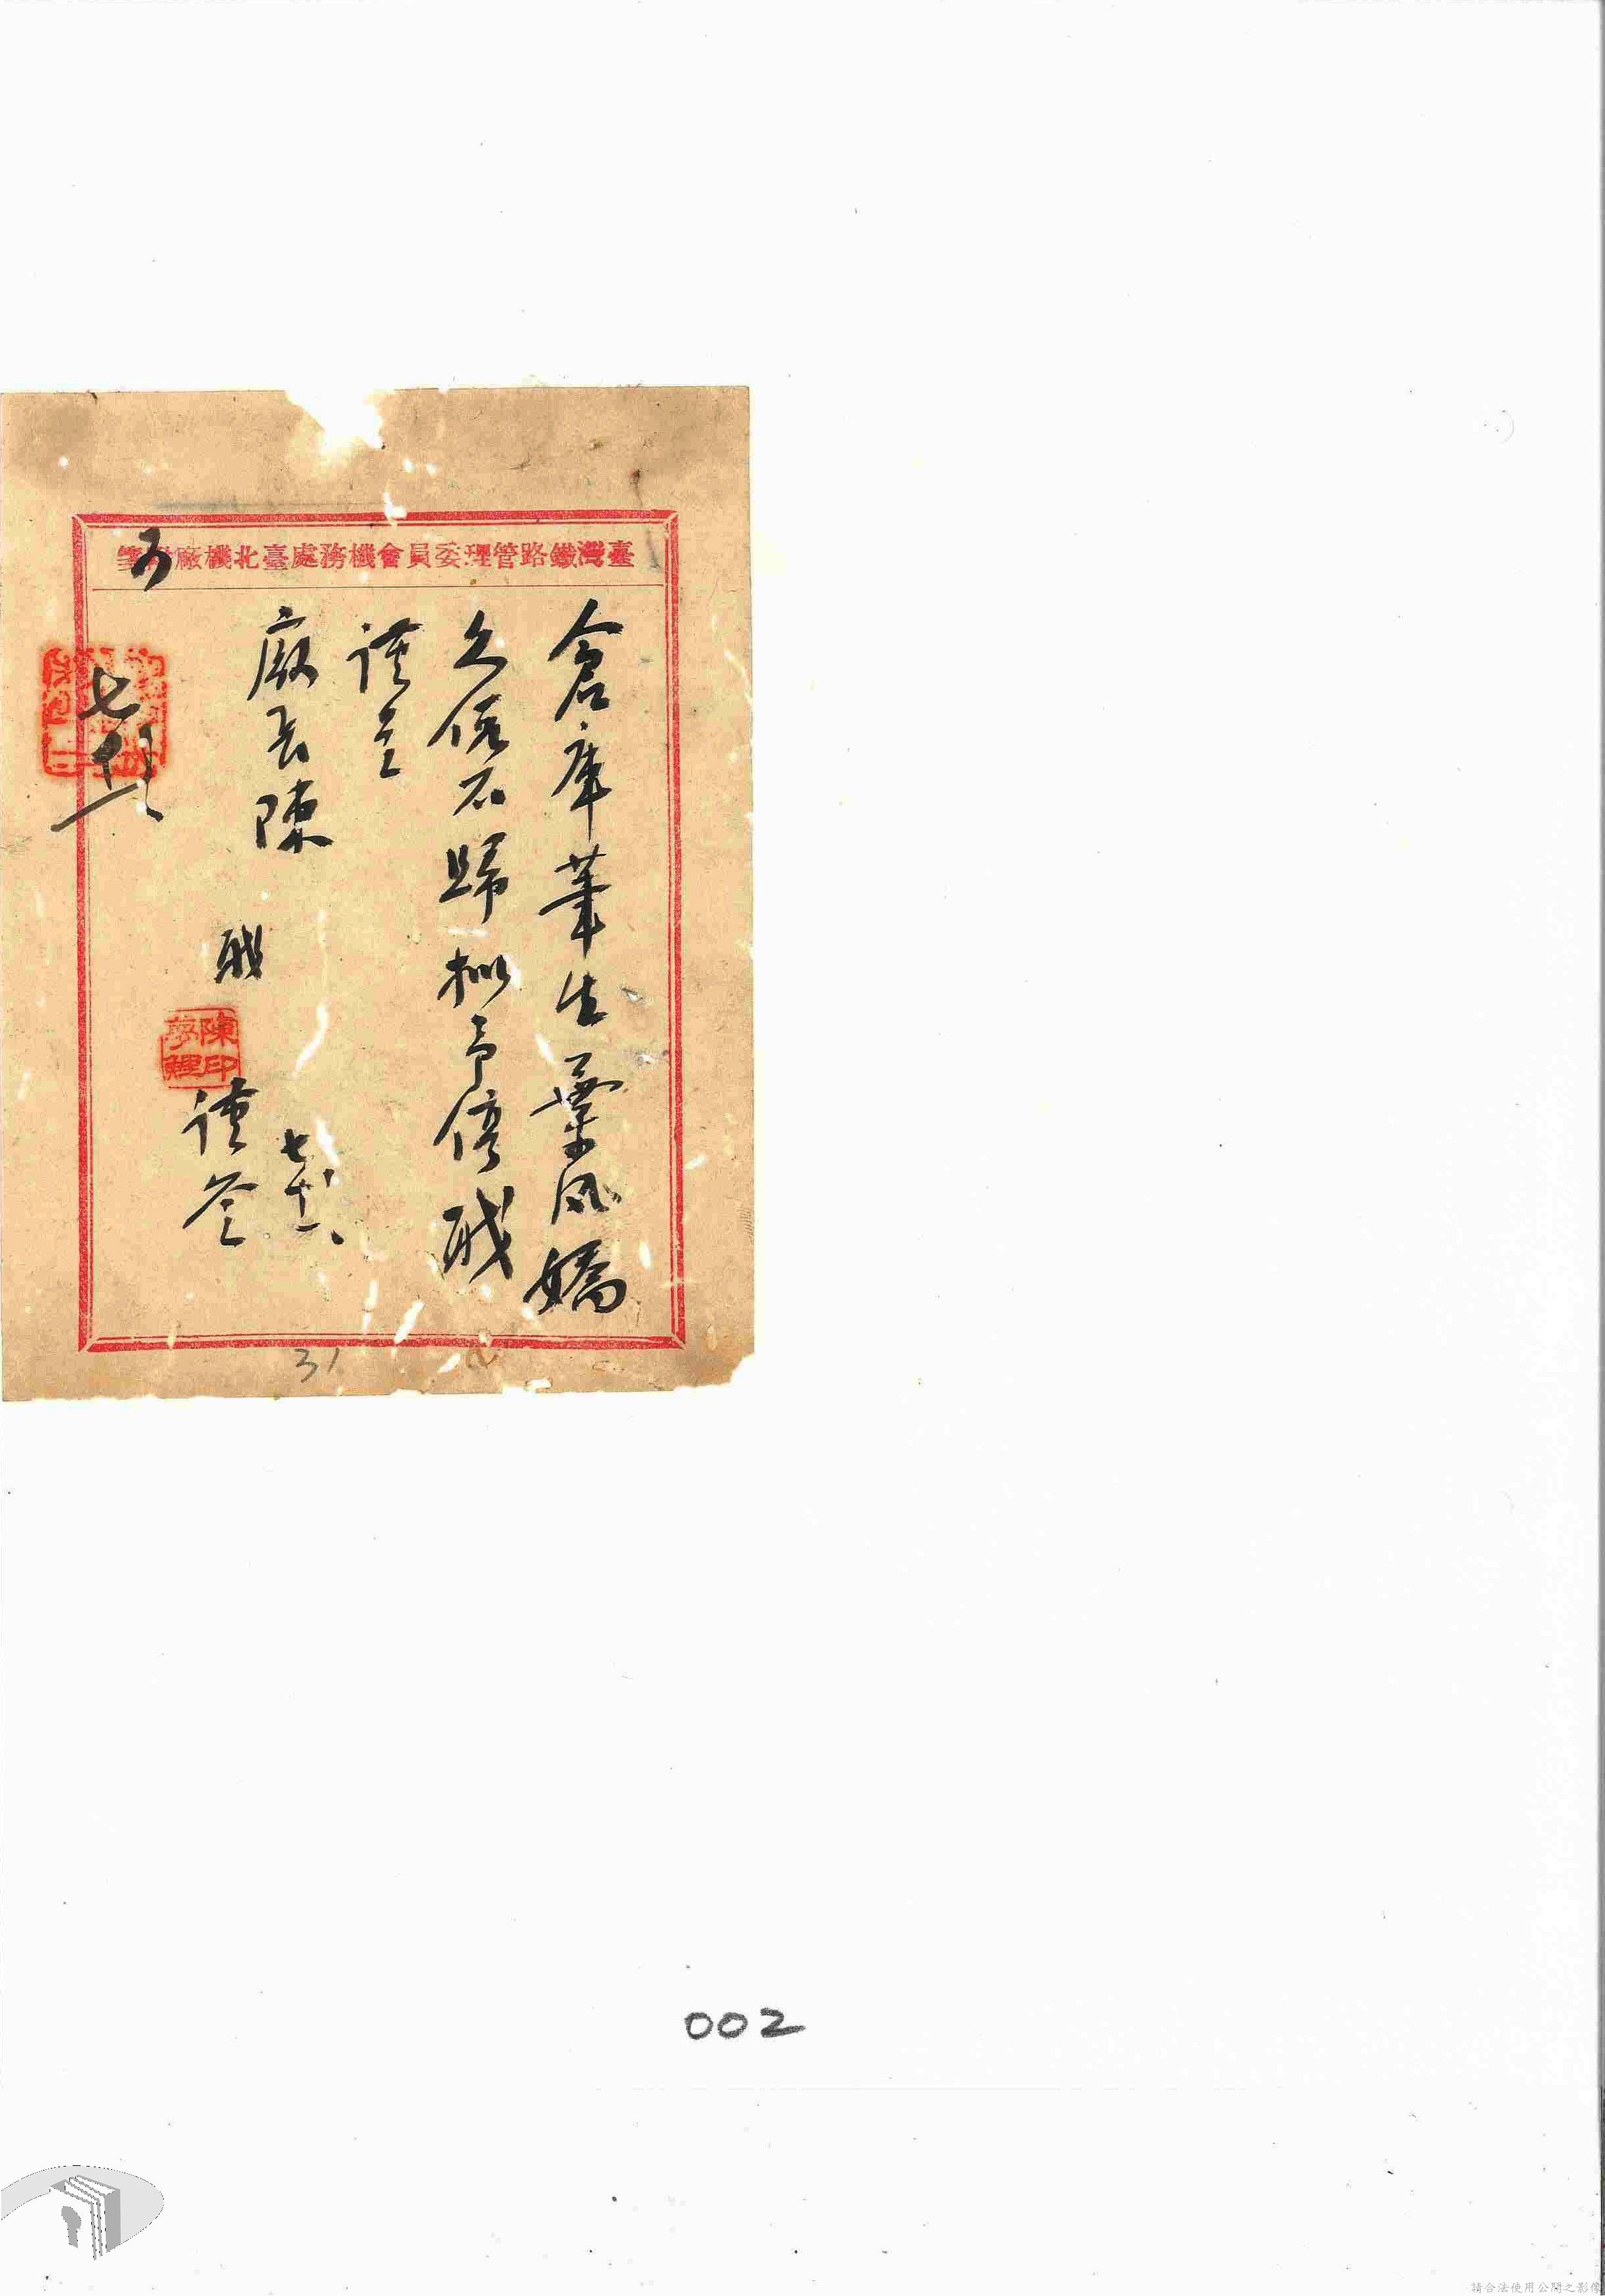 臺灣鐵路管理委員會機務處臺北機廠用箋
倉庫筆生葉鳳嬌
久假不歸擬予停職
謹呈
廠長陳
職
陳印夢鯉
謹簽
七
可
七
31
002
請合法使用公開之影像